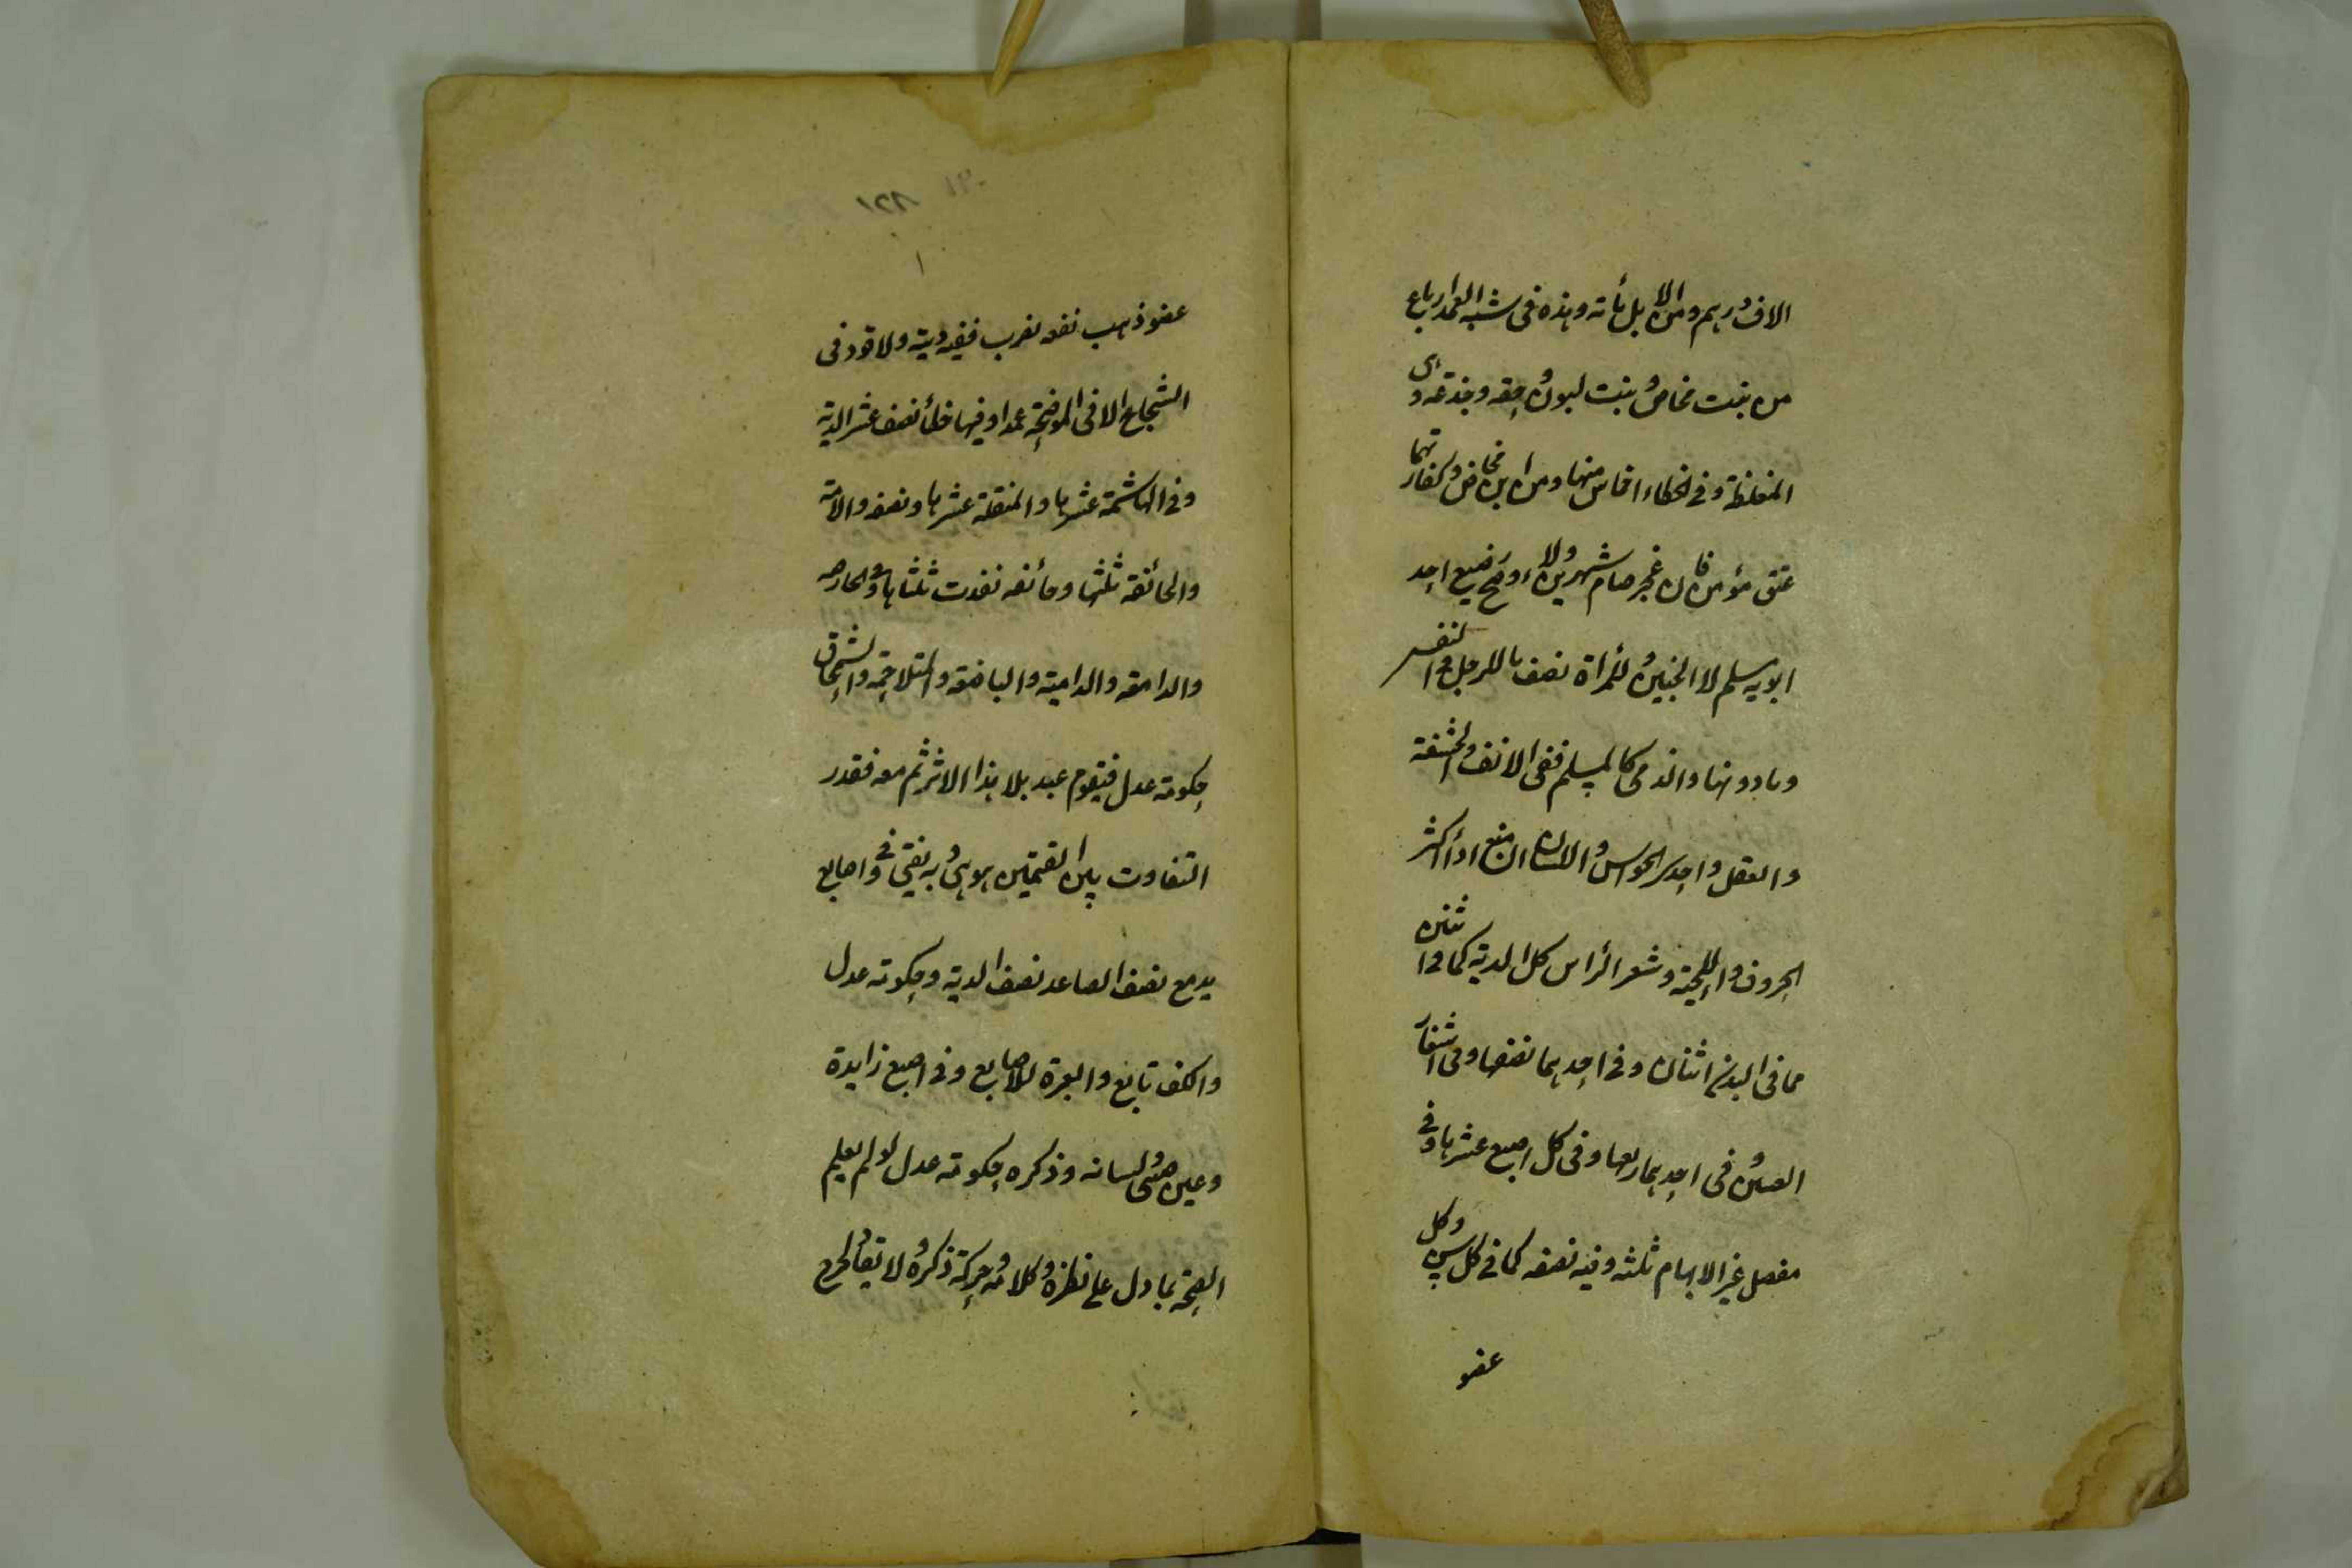 الاف درهم ومن الابل مأته وهذه فى شبه العمد ارباع
من بنت مخاض و بنت لبون و حقه وجذعه وهى
المغلظة وفى الخطاء اخماس منها ومن ابن مخاض وكفارتهما
عتق مؤمن فان عجز صام شهرين ولاء وصح رضيع احد
ابويه مسلم لا الجنين وللمراة نصف ما للرجل فى النفس
وما دونها والذمى كالمسلم ففى الانف والحشفة
والعقل واحد الحواس واللسان ان منع اداء اكثر
الحروف واللحية وشعر الراس كل الدية كما فى اثنين
مما فى البدن اثنان وفى احدهما نصفها وفى اشفار
العينين وفى احدهما ربعها وفى كل اصبع عشرها وفى
مفصل غير الابهام ثلثه وفيه نصفه كما فى كل سن وكل
عضو
عضو ذهب نفعه بضرب ففيه دية ولا قود فى
الشجاج الا فى الموضحة عمدا وفيها خطأ نصف عشر الدية
وفى الهاشمة عشرها والمنقلة عشرها ونصفه والامة
والجائفة ثلثها وجائفه نفذت ثلثاها وفى الحارصه
والدامعه والدامية والباضعه والمتلاحمه والسمحاق
حكومة عدل فيقوم عبد بلا هذا الاثر ثم معه فقدر
التفاوت بين القيمتين هو هى وبه يفتى وفى اصابع
يد مع نصف الساعد نصف الدية وحكومة عدل
والكف تابع والعبرة للاصابع وفى اصبع زايدة
وعين صبى ولسانه وذكره حكومة عدل لو لم يعلم
الصحة بما دل على نظره وكلامه وحركة ذكره ولا يقاد جرح